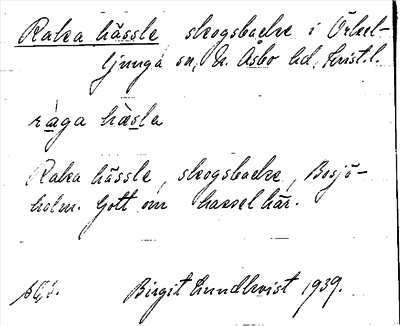 Raka hässle, skogsbacke i Örkel-
ljunga sn, N. Åsbo hd, Krist. l.
råga hàsla
Raka hässle, skogsbacke, Bosjö-
holm. Gott om hassel här.
Birgit Lundkvist 1939.